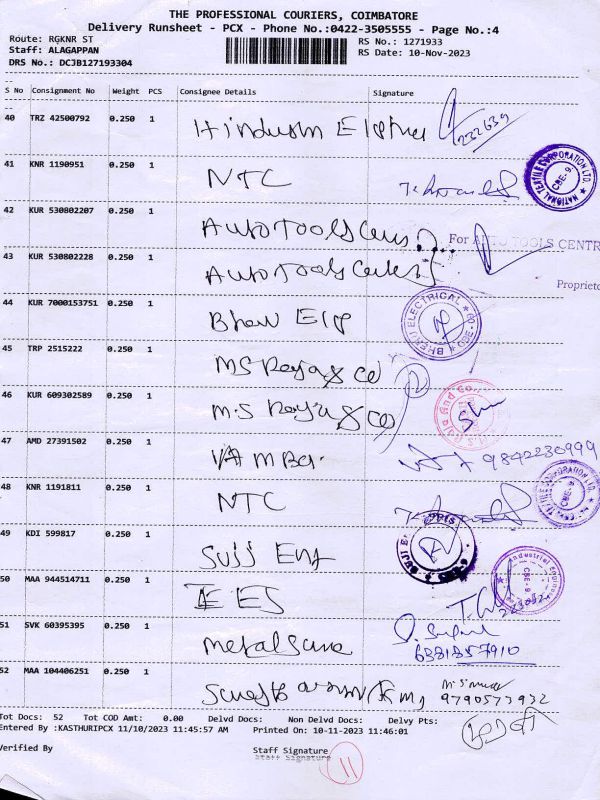 THE PROFESSIONAL COURIERS, COIMBATORE
Delivery Runsheet - PCX - Phone No.:0422-3505555 - Page No.:4
Route: RGKNR ST
RS No.: 1271933
Staff: ALAGAPPAN
RS Date: 10-Nov-2023
DRS No.: DCJB127193304
S No Consignment No Weight PCS Consignee Details Signature
40 TRZ 42500792 0.250 1 Hindustan 232639
41 KNR 1190951 0.250 1 NTC
NATIONAL TEXTILE CORPORATION LTD. CBE-9
42 KUR 530802207 0.250 1 Auto Tools Cens
For AUTO TOOLS CENTR
43 KUR 530802228 0.250 1 Auto Tools Center
Proprieto
44 KUR 7000153751 0.250 1 Elp
BHERU ELECTRICAL CBE-09
45 TRP 2515222 0.250 1 MS Raja & co
46 KUR 609302589 0.250 1 M.S Raja & co
47 AMD 27391502 0.250 1 9842230999
48 KNR 1191811 0.250 1 NTC
49 KDI 599817 0.250 1 Suji
50 MAA 944514711 0.250 1
Industrial CBE-9
51 SVK 60395395 0.250 1
6381857910
52 MAA 104406251 0.250 1 9790573932
Tot Docs: 52 Tot COD Amt: 0.00 Delvd Docs: Non Delvd Docs: Delvy Pts:
Entered By :KASTHURIPCX 11/10/2023 11:45:57 AM Printed On: 10-11-2023 11:46:01
Verified By Staff Signature
Staff Signature
11